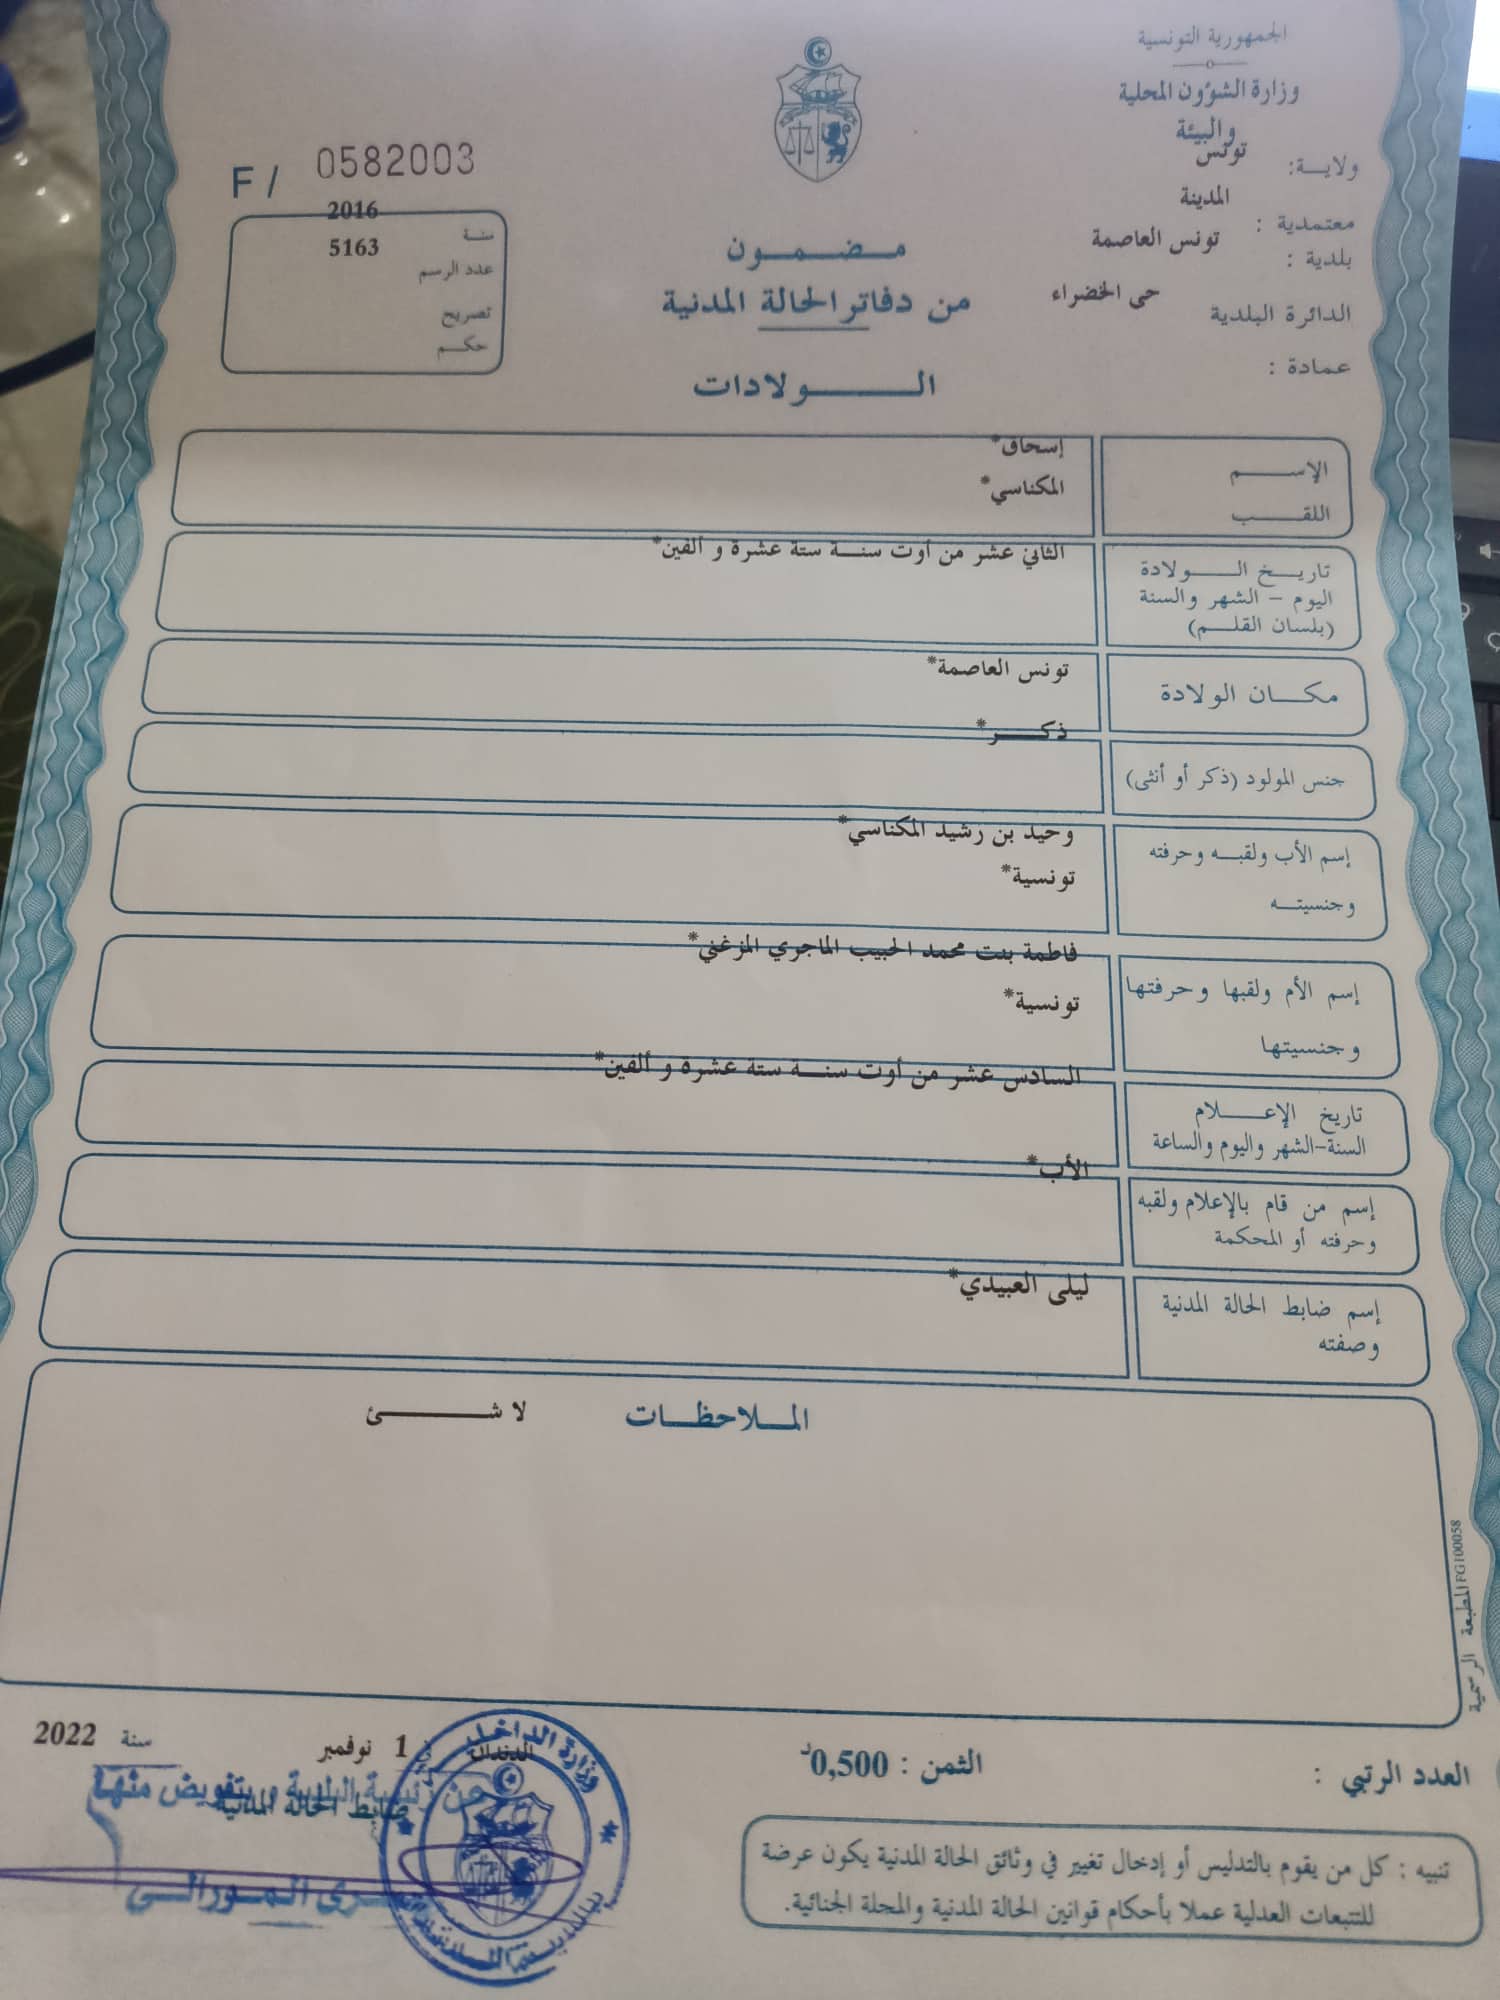 الجمهورية التونسية
وزارة الشؤون المحلية
والبيئة
ولاية: تونس
معتمدية : المدينة
بلدية : تونس العاصمة
الدائرة البلدية حى الخضراء
عمادة :
F / 0582003
سنة 2016
عدد الرسم 5163
تصريح
حكم
مضمون
من دفاتر الحالة المدنية
الولادات
الإسم إسحاق*
اللقب المكناسي*
تاريخ الولادة
اليوم - الشهر والسنة
(بلسان القلم)
الثاني عشر من أوت سنة ستة عشرة و ألفين*
مكان الولادة تونس العاصمة*
جنس المولود (ذكر أو أنثى) ذكر*
إسم الأب ولقبه وحرفته وحيد بن رشيد المكناسي*
وجنسيته تونسية*
إسم الأم ولقبها وحرفتها فاطمة بنت محمد الحبيب الماجري المزغني*
وجنسيتها تونسية*
تاريخ الإعلام
السنة-الشهر واليوم والساعة
السادس عشر من أوت سنة ستة عشرة و ألفين*
إسم من قام بالإعلام ولقبه
وحرفته أو المحكمة
الأب*
إسم ضابط الحالة المدنية
وصفته
ليلى العبيدي*
الملاحظات لا شئ
المطبعة الرسمية FG100058
العدد الرتبي :
الثمن : 0,500د
الدندان في 1 نوفمبر سنة 2022
ضابط الحالة المدنية
عن رئيسة البلدية وبتفويض منها
وزارة الداخلية
تنبيه : كل من يقوم بالتدليس أو إدخال تغيير في وثائق الحالة المدنية يكون عرضة
للتتبعات العدلية عملا بأحكام قوانين الحالة المدنية والمجلة الجنائية.